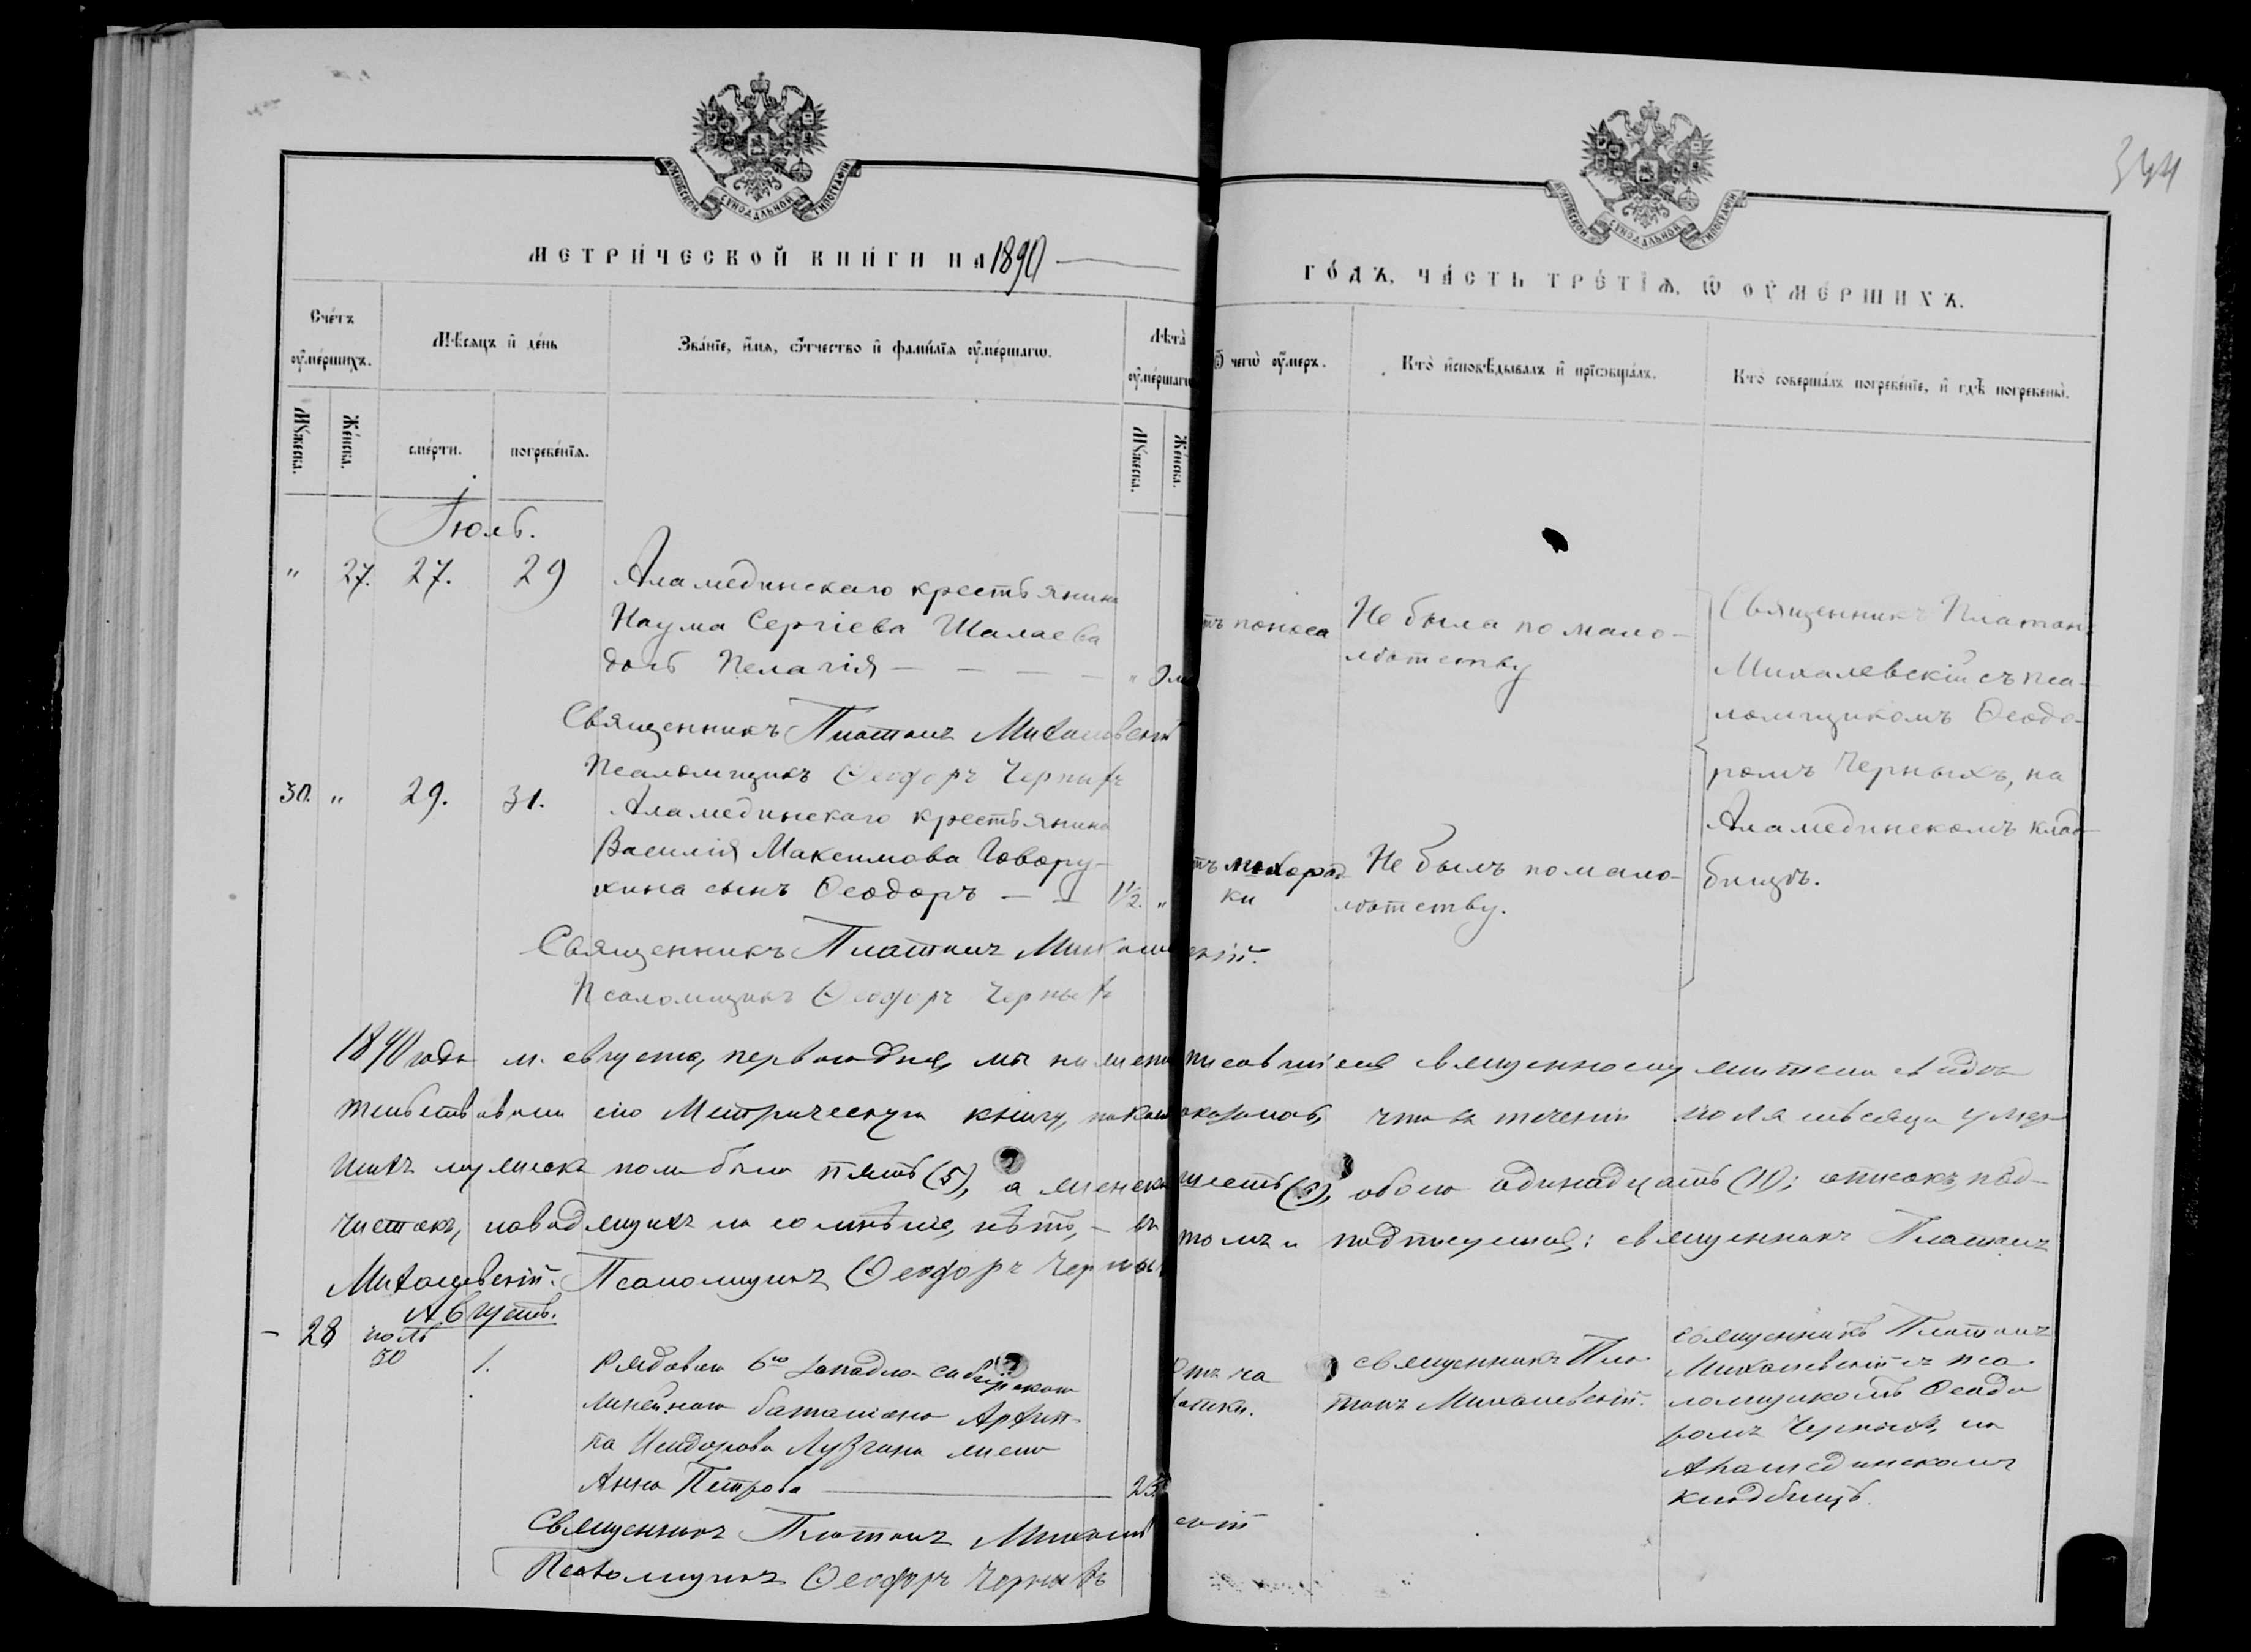 344
МОСКОВСКОЙ СѴНОДАЛЬНОЙ ТИПОГРАФІИ
МОСКОВСКОЙ СѴНОДАЛЬНОЙ ТИПОГРАФІИ
МЕТРИ́ЧЕСКОЙ КНИ́ГИ НА 1890
ГО́ДЪ, ЧА́СТЬ ТРЕ́ТІѦ, Ѿ ОУ҆МЕ́РШИХЪ.
Сче́тъ оу҆ме́ршихъ.
Мѣ́сяцъ и҆ де́нь
Зва́нїе, и҆́мѧ, ѻ҆́тчество и҆ фами́лїѧ оу҆ме́ршагѡ.
Лѣ́та оу҆ме́ршагѡ
Ѿ чегѡ̀ оу҆́меръ.
Кто̀ и҆сповѣ́дывалъ и҆ прїѡбща́лъ.
Кто̀ соверша́лъ погребе́нїе, и҆ гдѣ̀ погребены̀.
Мꙋ́жеска.
Же́нска.
сме́рти.
погребе́нїѧ.
Мꙋ́жеска.
Же́нска.
Іюль.
" 27. 27. 29
Аламединскаго крестьянина
Наума Сергіева Шалаева
дочь Пелагія — — — — "
тъ поноса
Не была по мало-
лѣтству
Священникъ Платонъ
Михалевскій съ пса-
ломщикомъ Ѳеодо-
ромъ Черныхъ, на
Аламединскомъ клад-
бищѣ.
Священникъ Платонъ Михалевскій
Псаломщикъ Ѳеодоръ Черныхъ
30. " 29. 31.
Аламединскаго крестьянина
Василія Максимова Говору-
хина сынъ Ѳеодоръ — 1½. "
тъ лихорад
ки
Не былъ по мало-
лѣтству.
Священникъ Платонъ Михалевскій.
Псаломщикъ Ѳеодоръ Черныхъ
1890 года м. августа, перваго дня, мы нижеподписавшіеся священнослужители свидѣ-
тельствовали сію Метрическую книгу, оказалось, что въ теченіи іюля мѣсяца умер-
шихъ мужеска пола было пять (5), а женска шесть (6), обоего одинадцать (11); описокъ, под-
чистокъ, наводящихъ на сомнѣніе, нѣтъ, — въ томъ и подписуемся: священникъ Платонъ
Михалевскій. Псаломщикъ Ѳеодоръ Черныхъ
Августъ.
— 28 іюль 30 1.
Рядоваго 6го Западно-сибирскаго
линейнаго баталіона Архип-
па Исидорова Лузгина жена
Анна Петрова — 25
Отъ ча
хотки.
священникъ Пла-
тонъ Михалевскій.
священникъ Платонъ
Михалевскій съ пса-
ломщикомъ Ѳеодо
ромъ Черныхъ, на
Аламединскомъ
кладбищѣ.
Священникъ Платонъ Михалевскій
Псаломщикъ Ѳеодоръ Черныхъ